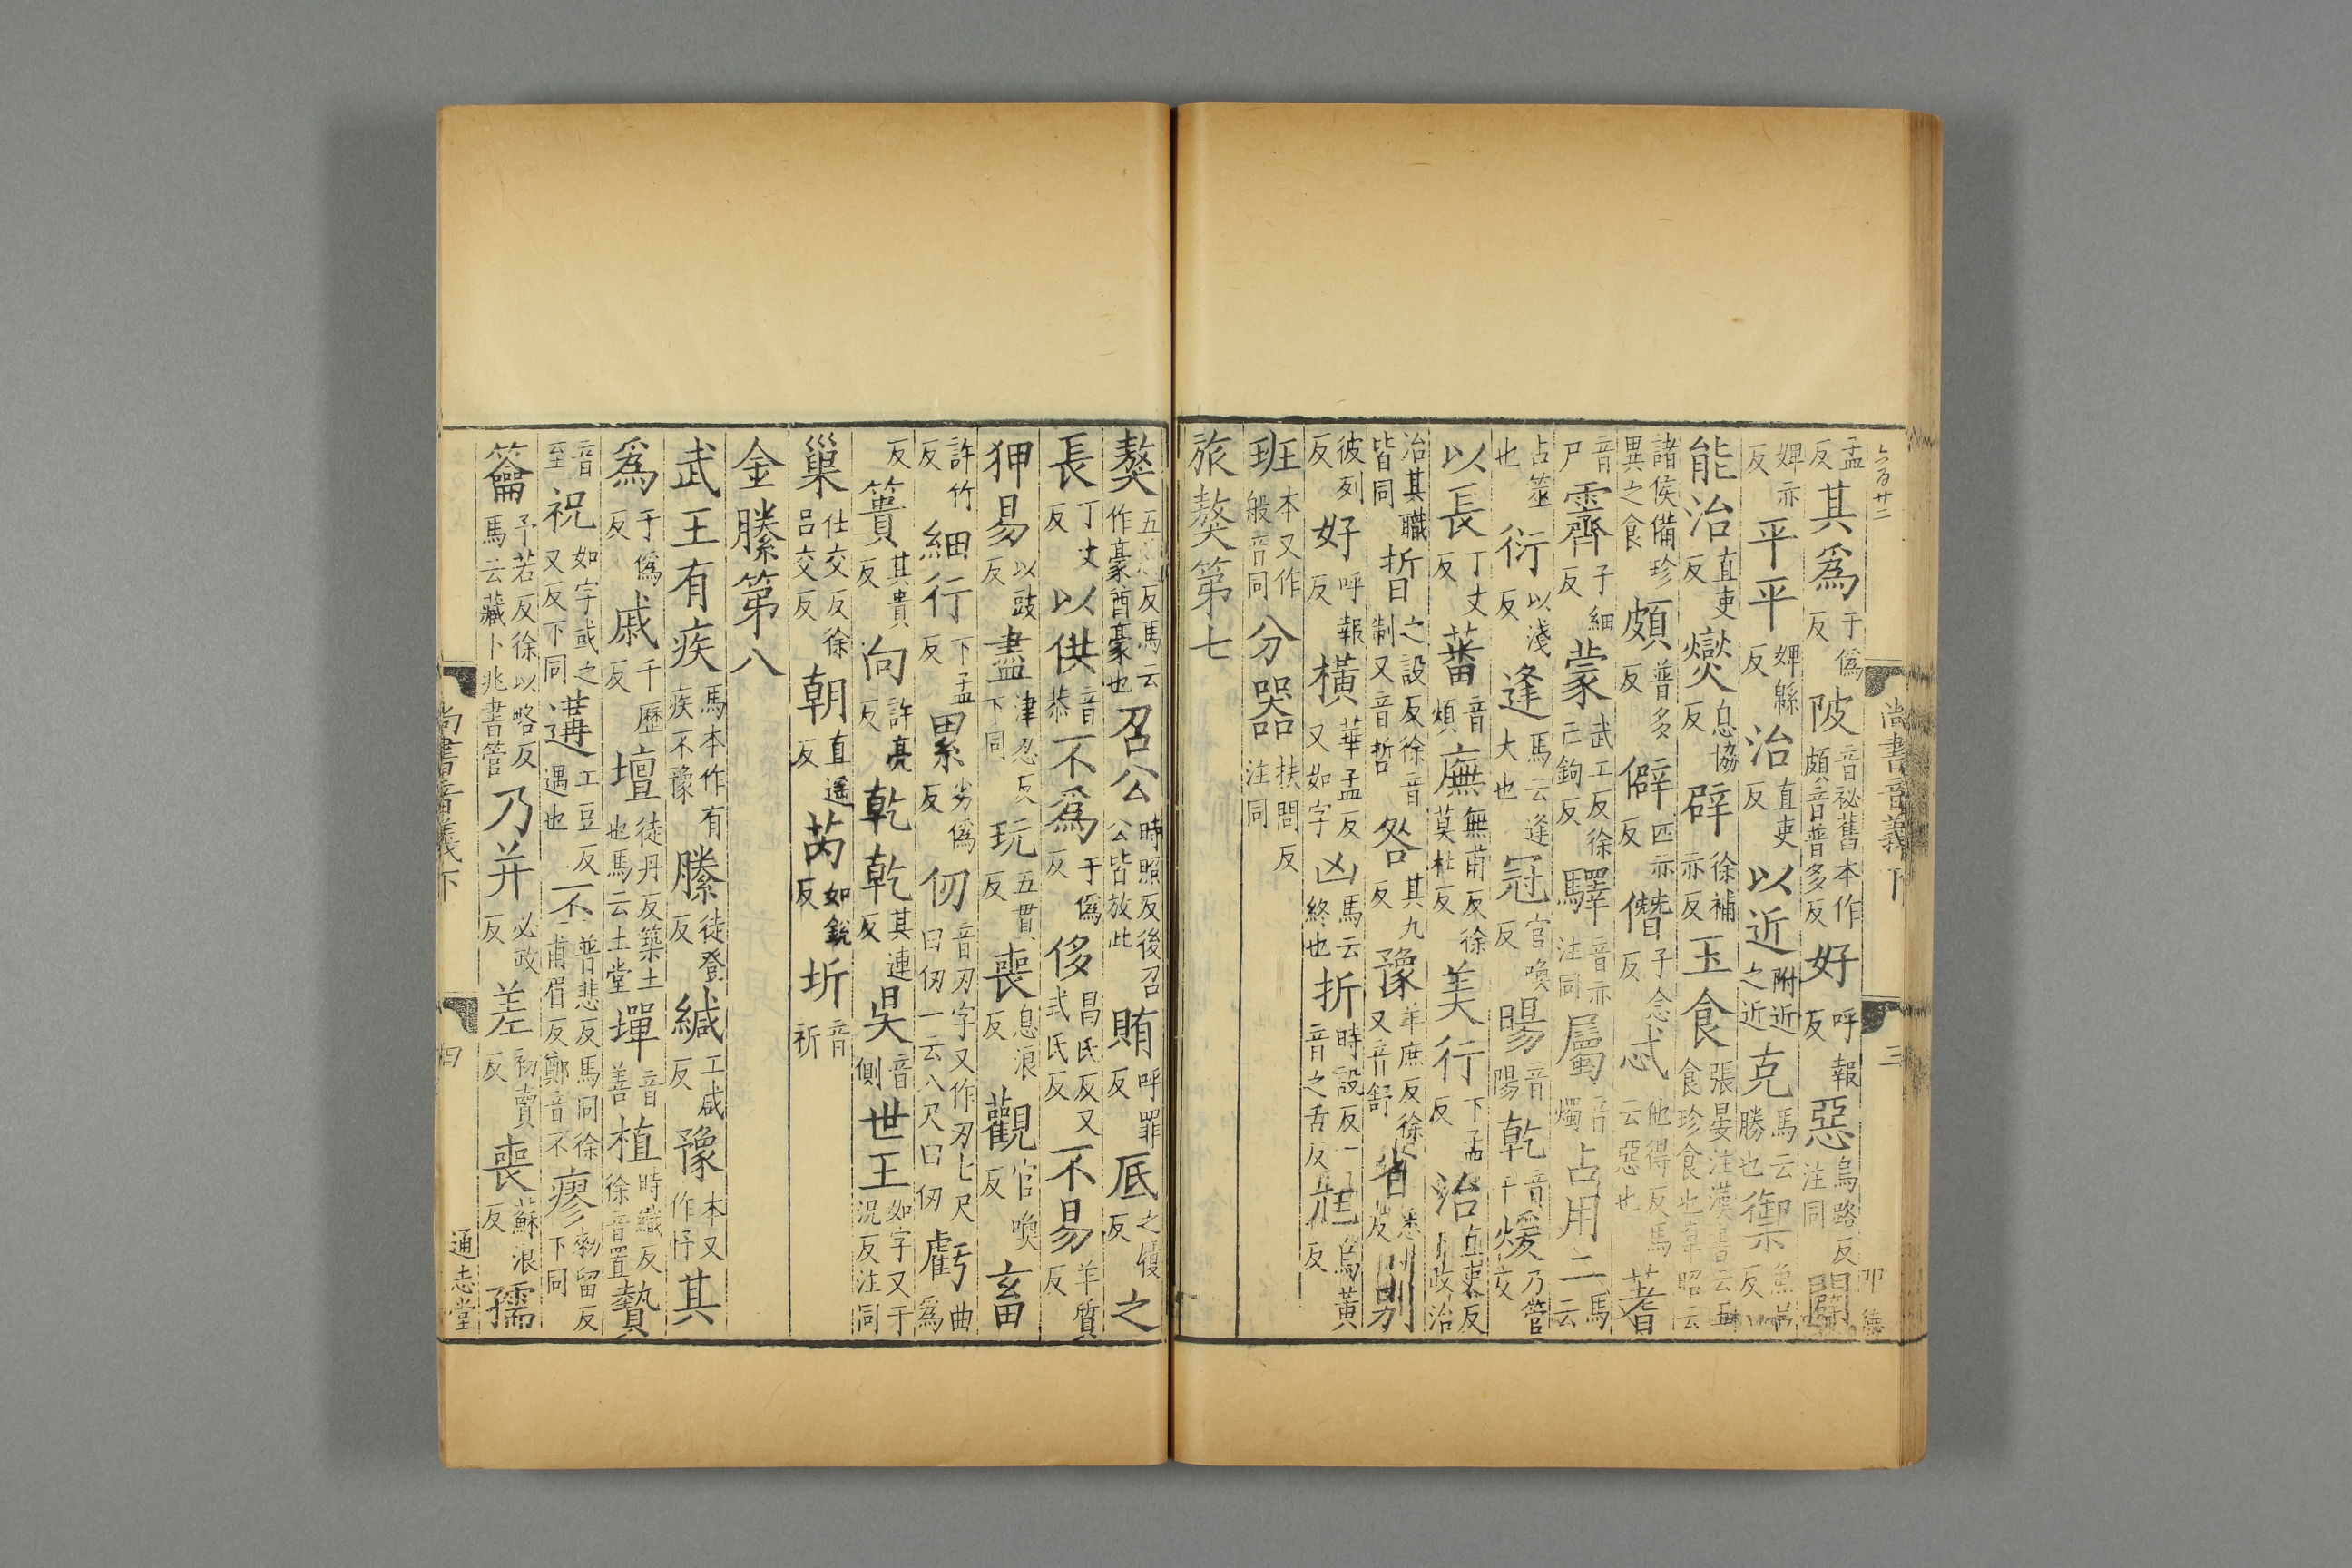 孟反其爲于僞反陂音祕舊本作頗音普多反好呼報反惡烏路反注同闢
婢亦反平平婢緜反治直吏反以近附近之近克馬云勝也禦魚
能治直吏反燮息協反辟徐補亦反玉食張晏注漢書云玉食珍食也韋昭云
諸侯備珍異之食頗普多反僻匹亦反僭子念反忒他得反馬云惡也蓍
音尸霽子細反蒙武工反徐亡鉤反驛音亦注同屬音燭占用二馬云
占筮也衍以淺反逢馬云逢大也冠官喚反暘音陽乾音干煖乃管反
以長丁丈反蕃音煩廡無甫反徐莫杜反美行下孟反治直吏反下政治
治其職皆同晢之設反徐音制又音哲咎其九反豫羊庶反徐又音舒省悉反別
彼列反好呼報反橫華孟反又如字凶馬云終也折時設反一音之舌反尪烏黃反
班本又作般音同分器扶問反注同
旅獒第七
尚書音義下
三
獒五反馬云作豪酋豪也召公時照反後召公皆放此賄呼罪反厎之履反之
長丁丈反以供音恭不爲于僞反侈昌氏反又式氏反不易羊質反
狎易以豉反盡津忍反下同玩五貫反喪息浪反觀官喚反畜
許竹反細行下孟反累劣僞反仞音刃字又作刃七尺曰仞一云八尺曰仞虧曲爲
反簣其貴反向許亮反乾乾其連反昃音側世王如字又于況反注同
巢仕交反徐呂交反朝直遙反芮如銳反圻音祈
金縢第八
武王有疾馬本作有疾不豫縢徒登反緘工咸反豫本又作忬其
爲于僞反戚千歷反壇徒丹反築土也馬云土堂墠音善植時織反徐音置贄
音至祝如字或之又反下同遘工豆反遇也不普悲反馬同徐甫眉反鄭音不瘳勑留反下同
籥予若反徐以略反馬云藏卜兆書管乃并必政反差初賣反喪蘇浪反孺
尚書音義下
四
通志堂